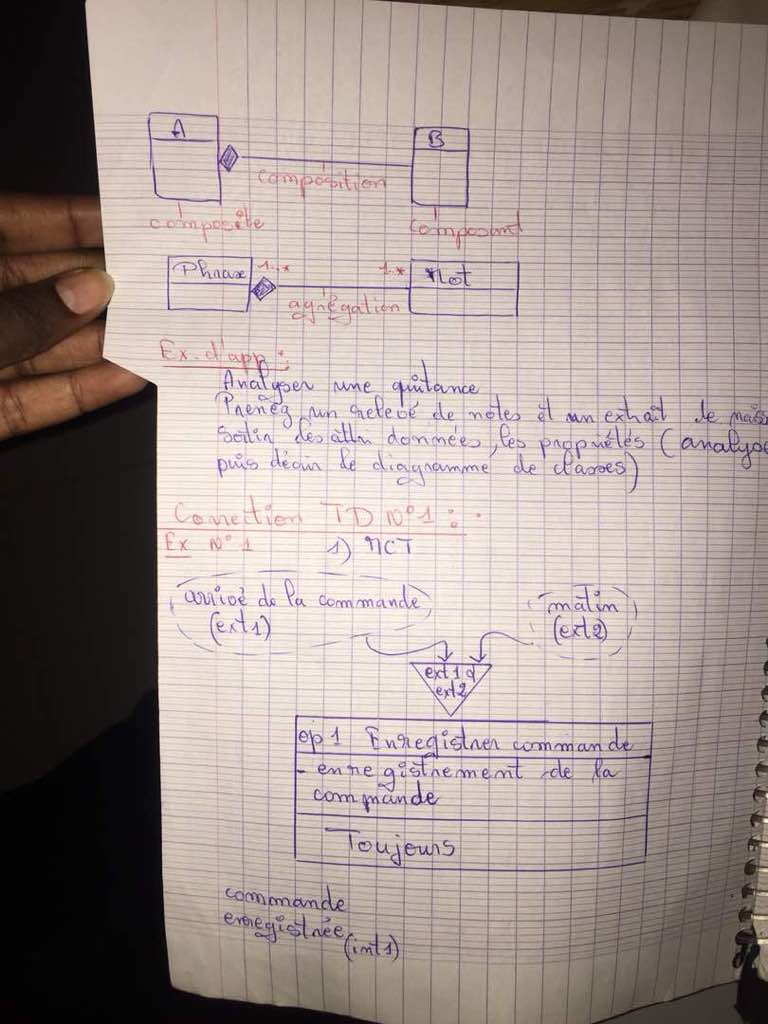 A
B
composition
composite
composant
Phrase 1..* 1..* Mot
agrégation
Ex. d'app :
Analyser une quitance
Prenez un relevé de notes et un extrait de
les données, les propriétés (analyse
puis le diagramme de classes)
Correction TD N°1 :
Ex N°1 1) MCT
arrivé de la commande
(ext1)
matin
(ext2)
ext1 et
ext2
op1 Enregistrer commande
- enregistrement de la
commande
Toujours
commande
enregistrée
(int1)